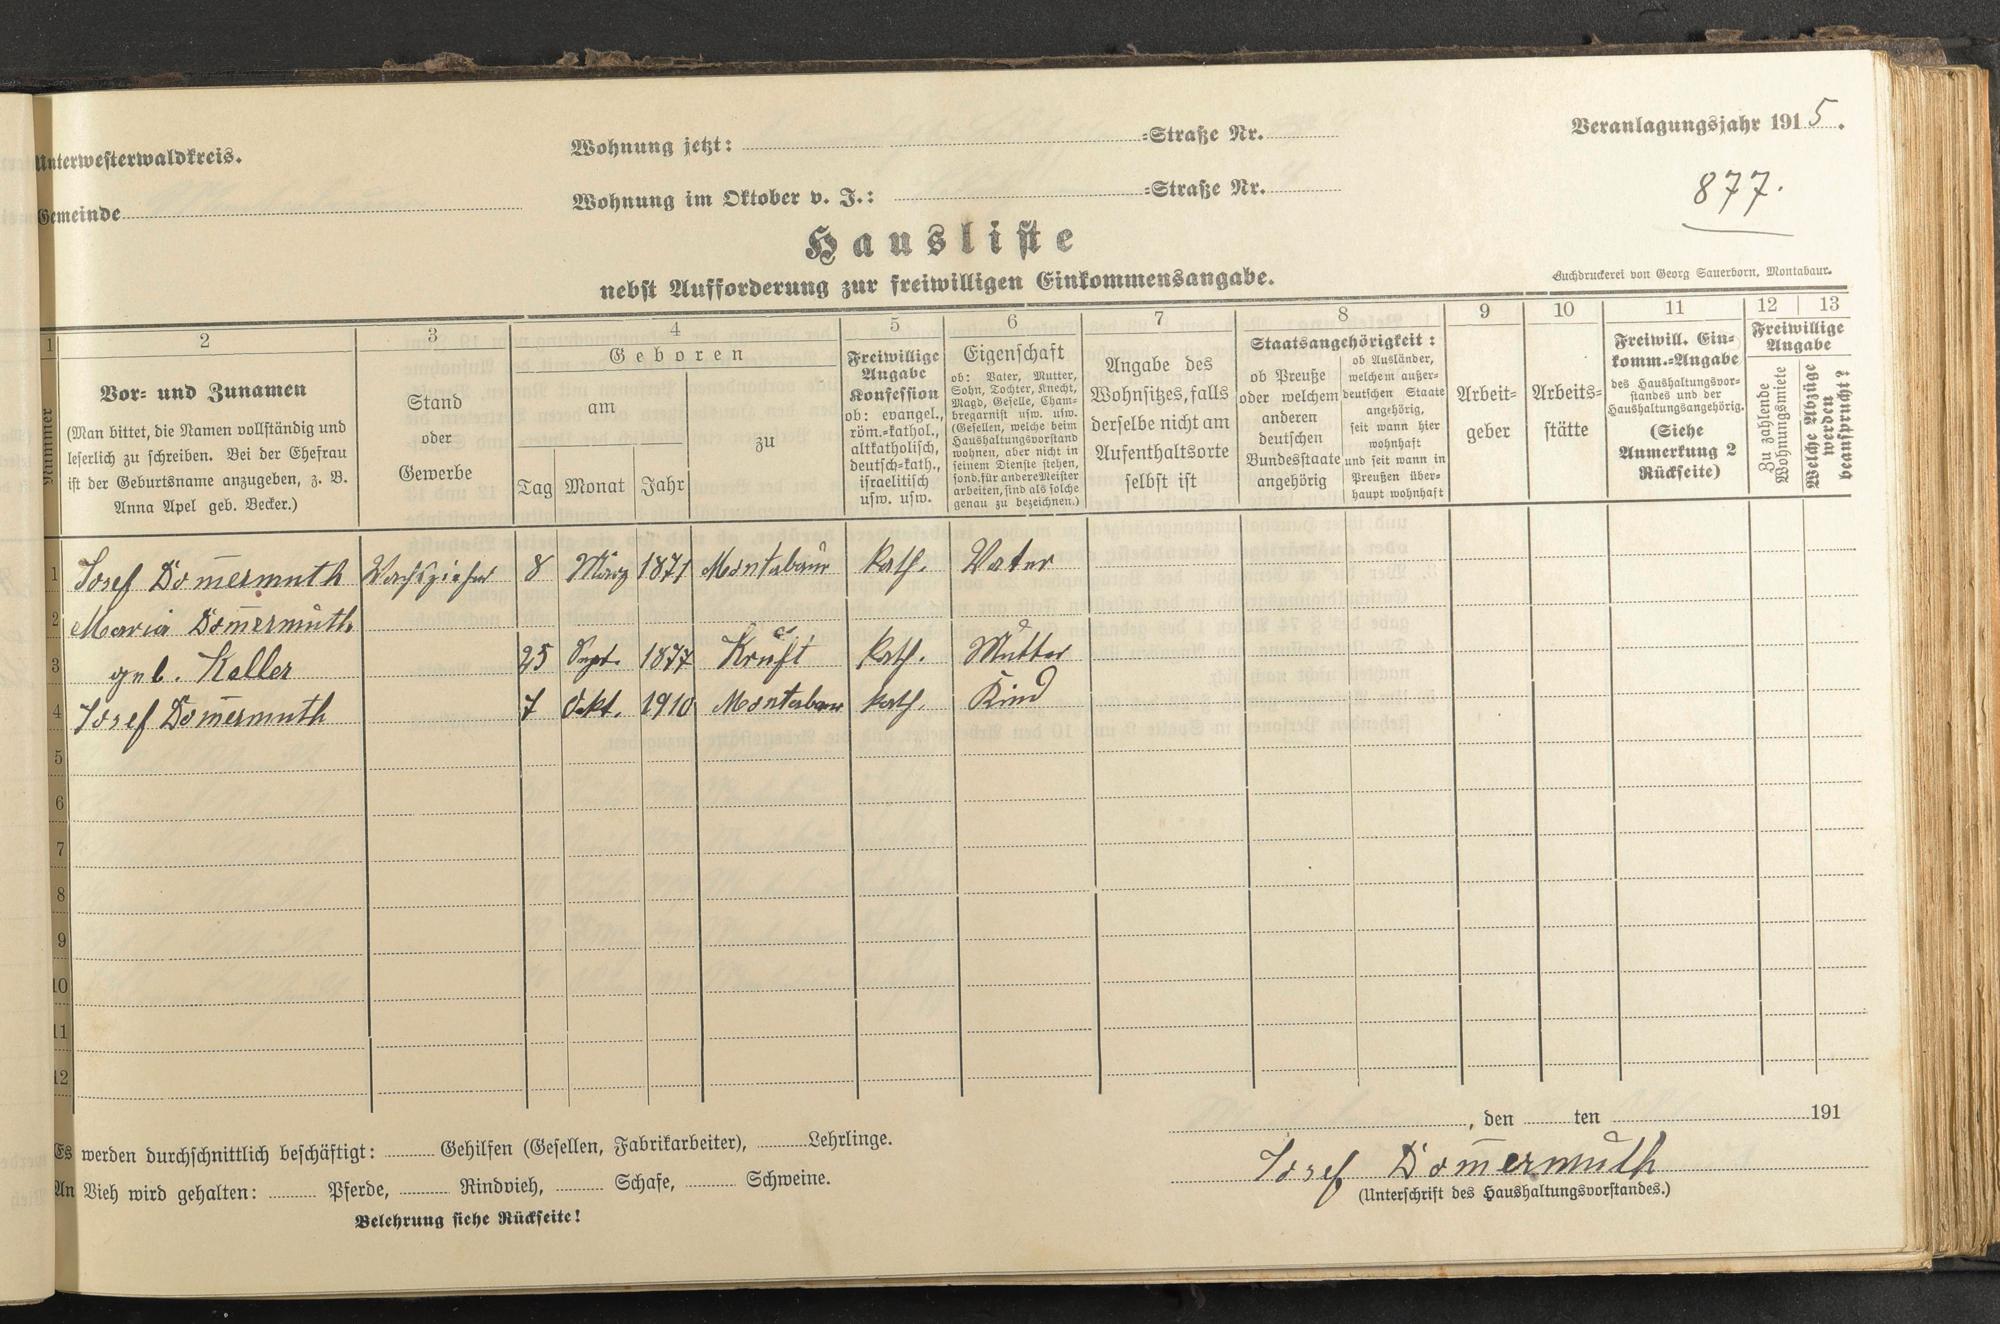 Unterwesterwaldkreis.
Wohnung jetzt: -Straße Nr.
Veranlagungsjahr 1915.
Gemeinde
Wohnung im Oktober v. J.: -Straße Nr.
877.
Hausliste
nebst Aufforderung zur freiwilligen Einkommensangabe.
Buchdruckerei von Georg Sauerborn, Montabaur.
1 2 3 4 5 6 7 8 9 10 11 12 13
Nummer
Vor- und Zunamen
(Man bittet, die Namen vollständig und
leserlich zu schreiben. Bei der Ehefrau
ist der Geburtsname anzugeben, z. B.
Anna Apel geb. Becker.)
Stand
oder
Gewerbe
Geboren
am
Tag Monat Jahr
zu
Freiwillige
Angabe
Konfession
ob: evangel.,
röm.-kathol.,
altkatholisch,
deutsch-kath.,
israelitisch
usw. usw.
Eigenschaft
ob: Vater, Mutter,
Sohn, Tochter, Knecht,
Magd, Geselle, Cham-
bregarnist usw. usw.
(Gesellen, welche beim
Haushaltungsvorstand
wohnen, aber nicht in
seinem Dienste stehen,
sond. für andere Meister
arbeiten, sind als solche
genau zu bezeichnen.)
Angabe des
Wohnsitzes, falls
derselbe nicht am
Aufenthaltsorte
selbst ist
Staatsangehörigkeit:
ob Preuße
oder welchem
anderen
deutschen
Bundesstaate
angehörig
ob Ausländer,
welchem außer-
deutschen Staate
angehörig,
seit wann hier
wohnhaft
und seit wann in
Preußen über-
haupt wohnhaft
Arbeit-
geber
Arbeits-
stätte
Freiwill. Ein-
komm.-Angabe
des Haushaltungsvor-
standes und der
Haushaltungsangehörig.
(Siehe
Anmerkung 2
Rückseite)
Freiwillige
Angabe
Zu zahlende
Wohnungsmiete
Welche Abzüge
werden
beansprucht?
1 Josef Dom̄ermuth Wachszieher 8 März 1871 Montabaur kath. Vater
2 Maria Dom̄ermuth
3 geb. Keller 25 Sept. 1877 Kruft kath. Mutter
4 Josef Dom̄ermuth 7 Okt. 1910 Montabaur kath. Kind
5
6
7
8
9
10
11
12
, den ten 191
Es werden durchschnittlich beschäftigt: Gehilfen (Gesellen, Fabrikarbeiter), Lehrlinge.
Josef Dom̄ermuth
An Vieh wird gehalten: Pferde, Rindvieh, Schafe, Schweine.
(Unterschrift des Haushaltungsvorstandes.)
Belehrung siehe Rückseite!